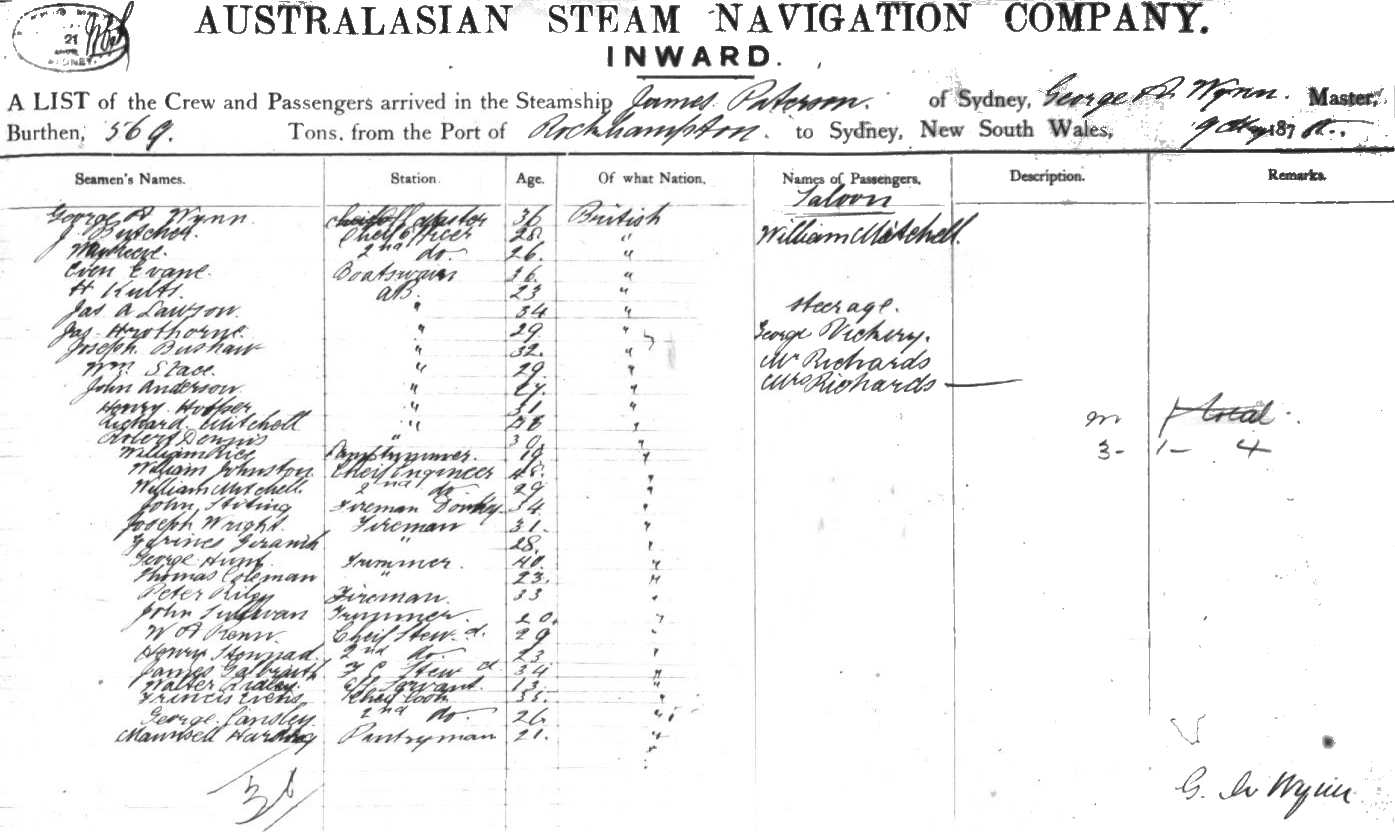 21
SYDNEY
AUSTRALASIAN STEAM NAVIGATION COMPANY.
INWARD.
A LIST of the Crew and Passengers arrived in the Steamship James Paterson. of Sydney, George A Wynn. Master,
Burthen, 569. Tons, from the Port of Rockhampton. to Sydney, New South Wales, 9 May 187
Seamen's Names. Station. Age. Of what Nation. Names of Passengers, Description. Remarks.
Saloon
George A Wynn. Master 36 British
J Butcher. Cheif Officer 28. " William Mitchell.
2nd do. 26. "
Even Evans. Boatswain 36. "
H Kults. AB. 23 "
Jas A Lawson. " 34 " Steerage.
Jas. Hawthorne. " 29 " George Vickery.
Joseph Bushaw " 32. " Mr Richards
Wm Stace. " 29. " Mrs Richards
John Anderson. " 27. "
Henry Hooper " 31 "
Richard Mitchell " 28 " m total.
Robert Dennis " 30. "
William Rice Lamptrimmer. 19 " 3- 1- 4
William Johnston. Cheif Engineer 48. "
William Mitchell. 2nd do. 29 "
John Stiting Fireman Donkey 34 "
Joseph Wright. Fireman 31. "
" 28. "
George Hunt. Trimmer. 40. "
Thomas Coleman " 23. "
Peter Riley Fireman. 33 "
John Sullivan Trimmer. 20. "
W A Cheif Stewd. 29 "
Henry 2nd do. 23 "
James Galbraith F C Stewd 34 "
Walter Ridley. Servant. 13. "
Francis Evens Cheif Cook 35. "
George Cansley. 2nd do. 26. "
Maunsell Harding Pantryman 21. "
36
G. Wynn